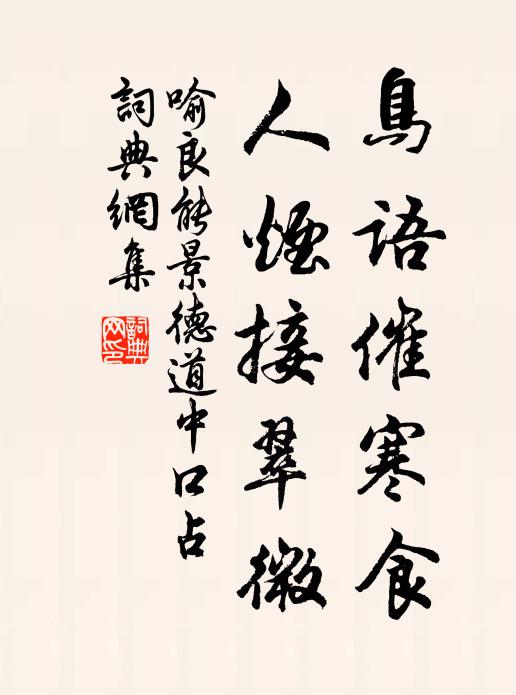 鳥語催寒食
人煙接翠微
喻良能景德道中口占
詞典網集
詞典
网印